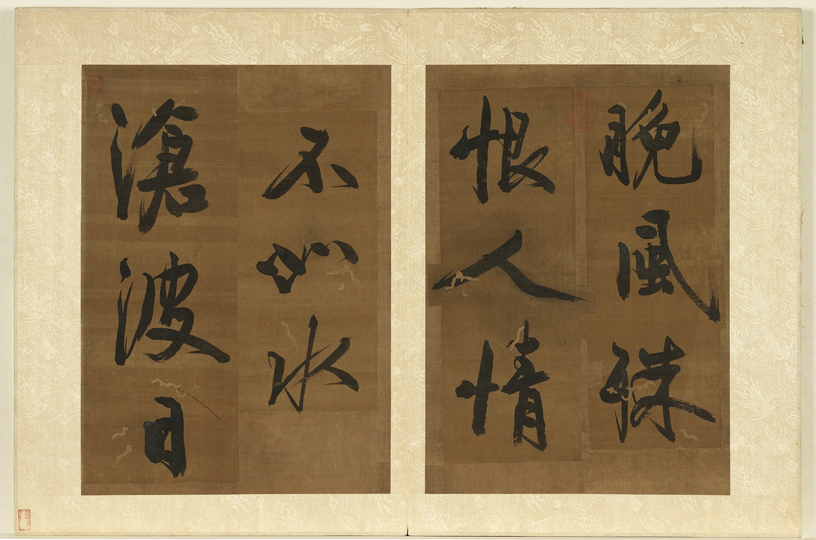 晚風殊
恨人情
不如水
滄波日